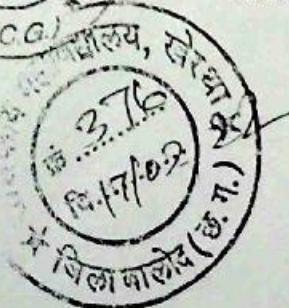 C.G.)
विद्यालय, खेरथा
क्रं 376
दि. 17/02
★ जिला बालोद (छ. ग.)